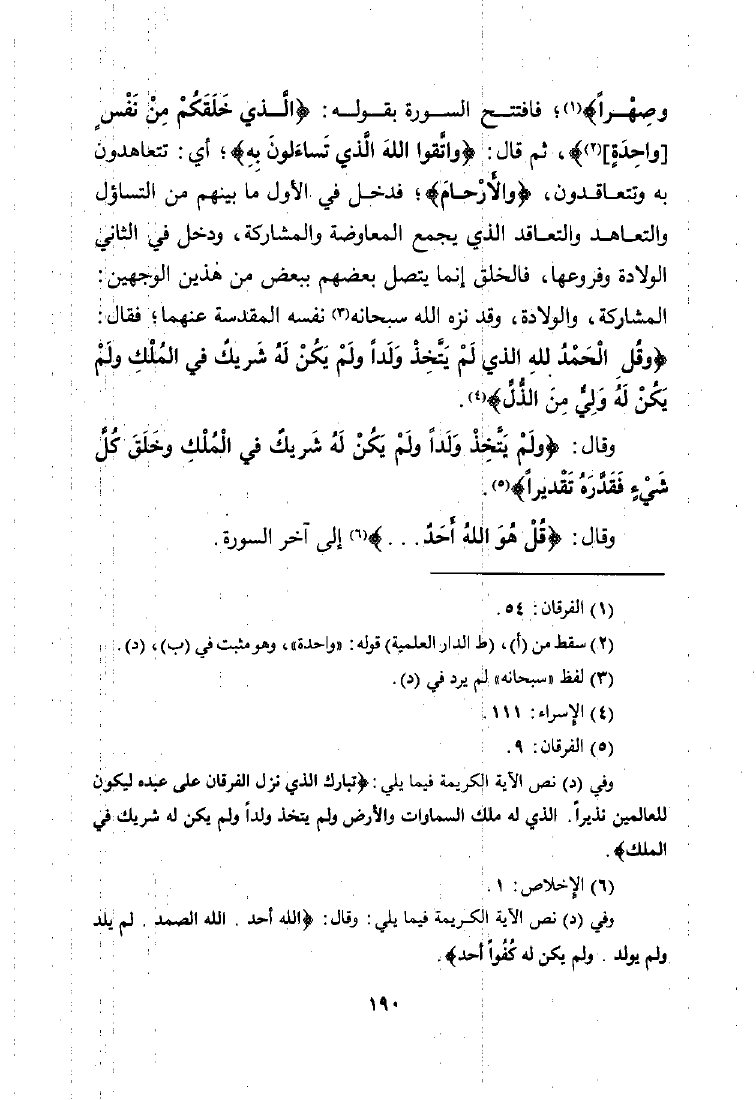 وصِهْـراً﴾(١)؛ فافتتـح السـورة بقـولـه: ﴿الَّـذي خَلَقَكُمْ مِنْ نَفْسٍ
[واحِدَةٍ](٢)﴾، ثم قال: ﴿واتَّقوا اللهَ الَّذي تَساءَلونَ بِهِ﴾؛ أي: تتعاهدون
به وتتعـاقـدون، ﴿والأَرْحـامَ﴾؛ فدخـل في الأول ما بينهم من التساؤل
والتعـاهـد والتعـاقد الذي يجمع المعاوضة والمشاركة، ودخل في الثاني
الولادة وفروعها، فالخلق إنما يتصل بعضهم ببعض من هٰذين الوجهين:
المشاركة، والولادة، وقد نزه الله سبحانه(٣) نفسه المقدسة عنهما؛ فقال:
﴿وقُلِ الْحَمْدُ للهِ الذي لَمْ يَتَّخِذْ وَلَداً ولَمْ يَكُنْ لَهُ شَريكٌ في المُلْكِ ولَمْ
يَكُنْ لَهُ وَلِيٌّ مِنَ الذُّلِّ﴾(٤).
وقال: ﴿ولَمْ يَتَّخِذْ وَلَداً ولَمْ يَكُنْ لَهُ شَريكٌ في الْمُلْكِ وخَلَقَ كُلَّ
شَيْءٍ فَقَدَّرَهُ تَقْديراً﴾(٥).
وقال: ﴿قُلْ هُوَ اللهُ أَحَدٌ. . .﴾(٦) إلى آخر السورة.
(١) الفرقان: ٥٤.
(٢) سقط من (أ)، (ط الدار العلمية) قوله: «واحدة»، وهو مثبت في (ب)، (د).
(٣) لفظ «سبحانه» لم يرد في (د).
(٤) الإسراء: ١١١.
(٥) الفرقان: ٩.
وفي (د) نص الآية الكريمة فيما يلي: ﴿تبارك الذي نزل الفرقان على عبده ليكون
للعالمين نذيراً. الذي له ملك السماوات والأرض ولم يتخذ ولداً ولم يكن له شريك في
الملك﴾.
(٦) الإخلاص: ١.
وفي (د) نص الآية الكريمة فيما يلي: وقال: ﴿الله أحد. الله الصمد. لم يلد
ولم يولد. ولم يكن له كُفُواً أحد﴾.
١٩٠